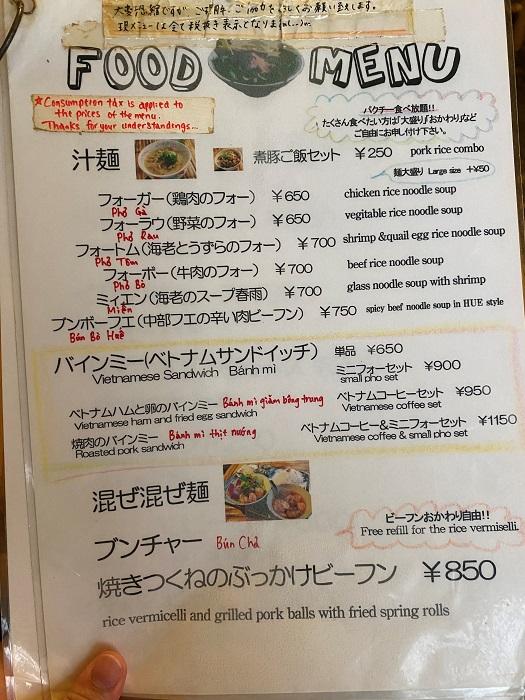 大変恐縮ですが ご理解、ご協力をよろしくお願い致します。
現メニューは全て税抜き表示となりま
FOOD MENU
★Consumption tax is applied to
the prices of the menu.
Thanks for your understandings...
パクチー食べ放題!!
たくさん食べたい方は「大盛り」「おかわり」など
ご自由にお申し付け下さい。
汁麺
煮豚ご飯セット ￥250 pork rice combo
麺大盛り Large size +¥50
フォーガー(鶏肉のフォー) ￥650 chicken rice noodle soup
Phở Gà
フォーラウ(野菜のフォー) ￥650 vegitable rice noodle soup
Phở Rau
フォートム(海老とうずらのフォー) ￥700 shrimp &quail egg rice noodle soup
Phở Tôm
フォーボー(牛肉のフォー) ￥700 beef rice noodle soup
Phở Bò
ミィエン(海老のスープ春雨) ￥700 glass noodle soup with shrimp
Miến
ブンボーフエ(中部フエの辛い肉ビーフン) ￥750 spicy beef noodle soup in HUE style
Bún Bò Huế
バインミー(ベトナムサンドイッチ) 単品 ￥650
Vietnamese Sandwich Bánh mì
ミニフォーセット ￥900
small pho set
ベトナムハムと卵のバインミー Bánh mì giăm bông trung
Vietnamese ham and fried egg sandwich
ベトナムコーヒーセット ￥950
Vietnamese coffee set
焼肉のバインミー Bánh mì thịt nướng
Roasted pork sandwich
ベトナムコーヒー&ミニフォーセット ￥1150
Vietnamese coffee & small pho set
混ぜ混ぜ麺
ビーフンおかわり自由!!
Free refill for the rice vermiselli.
ブンチャー Bún Chả
焼きつくねのぶっかけビーフン ￥850
rice vermicelli and grilled pork balls with fried spring rolls